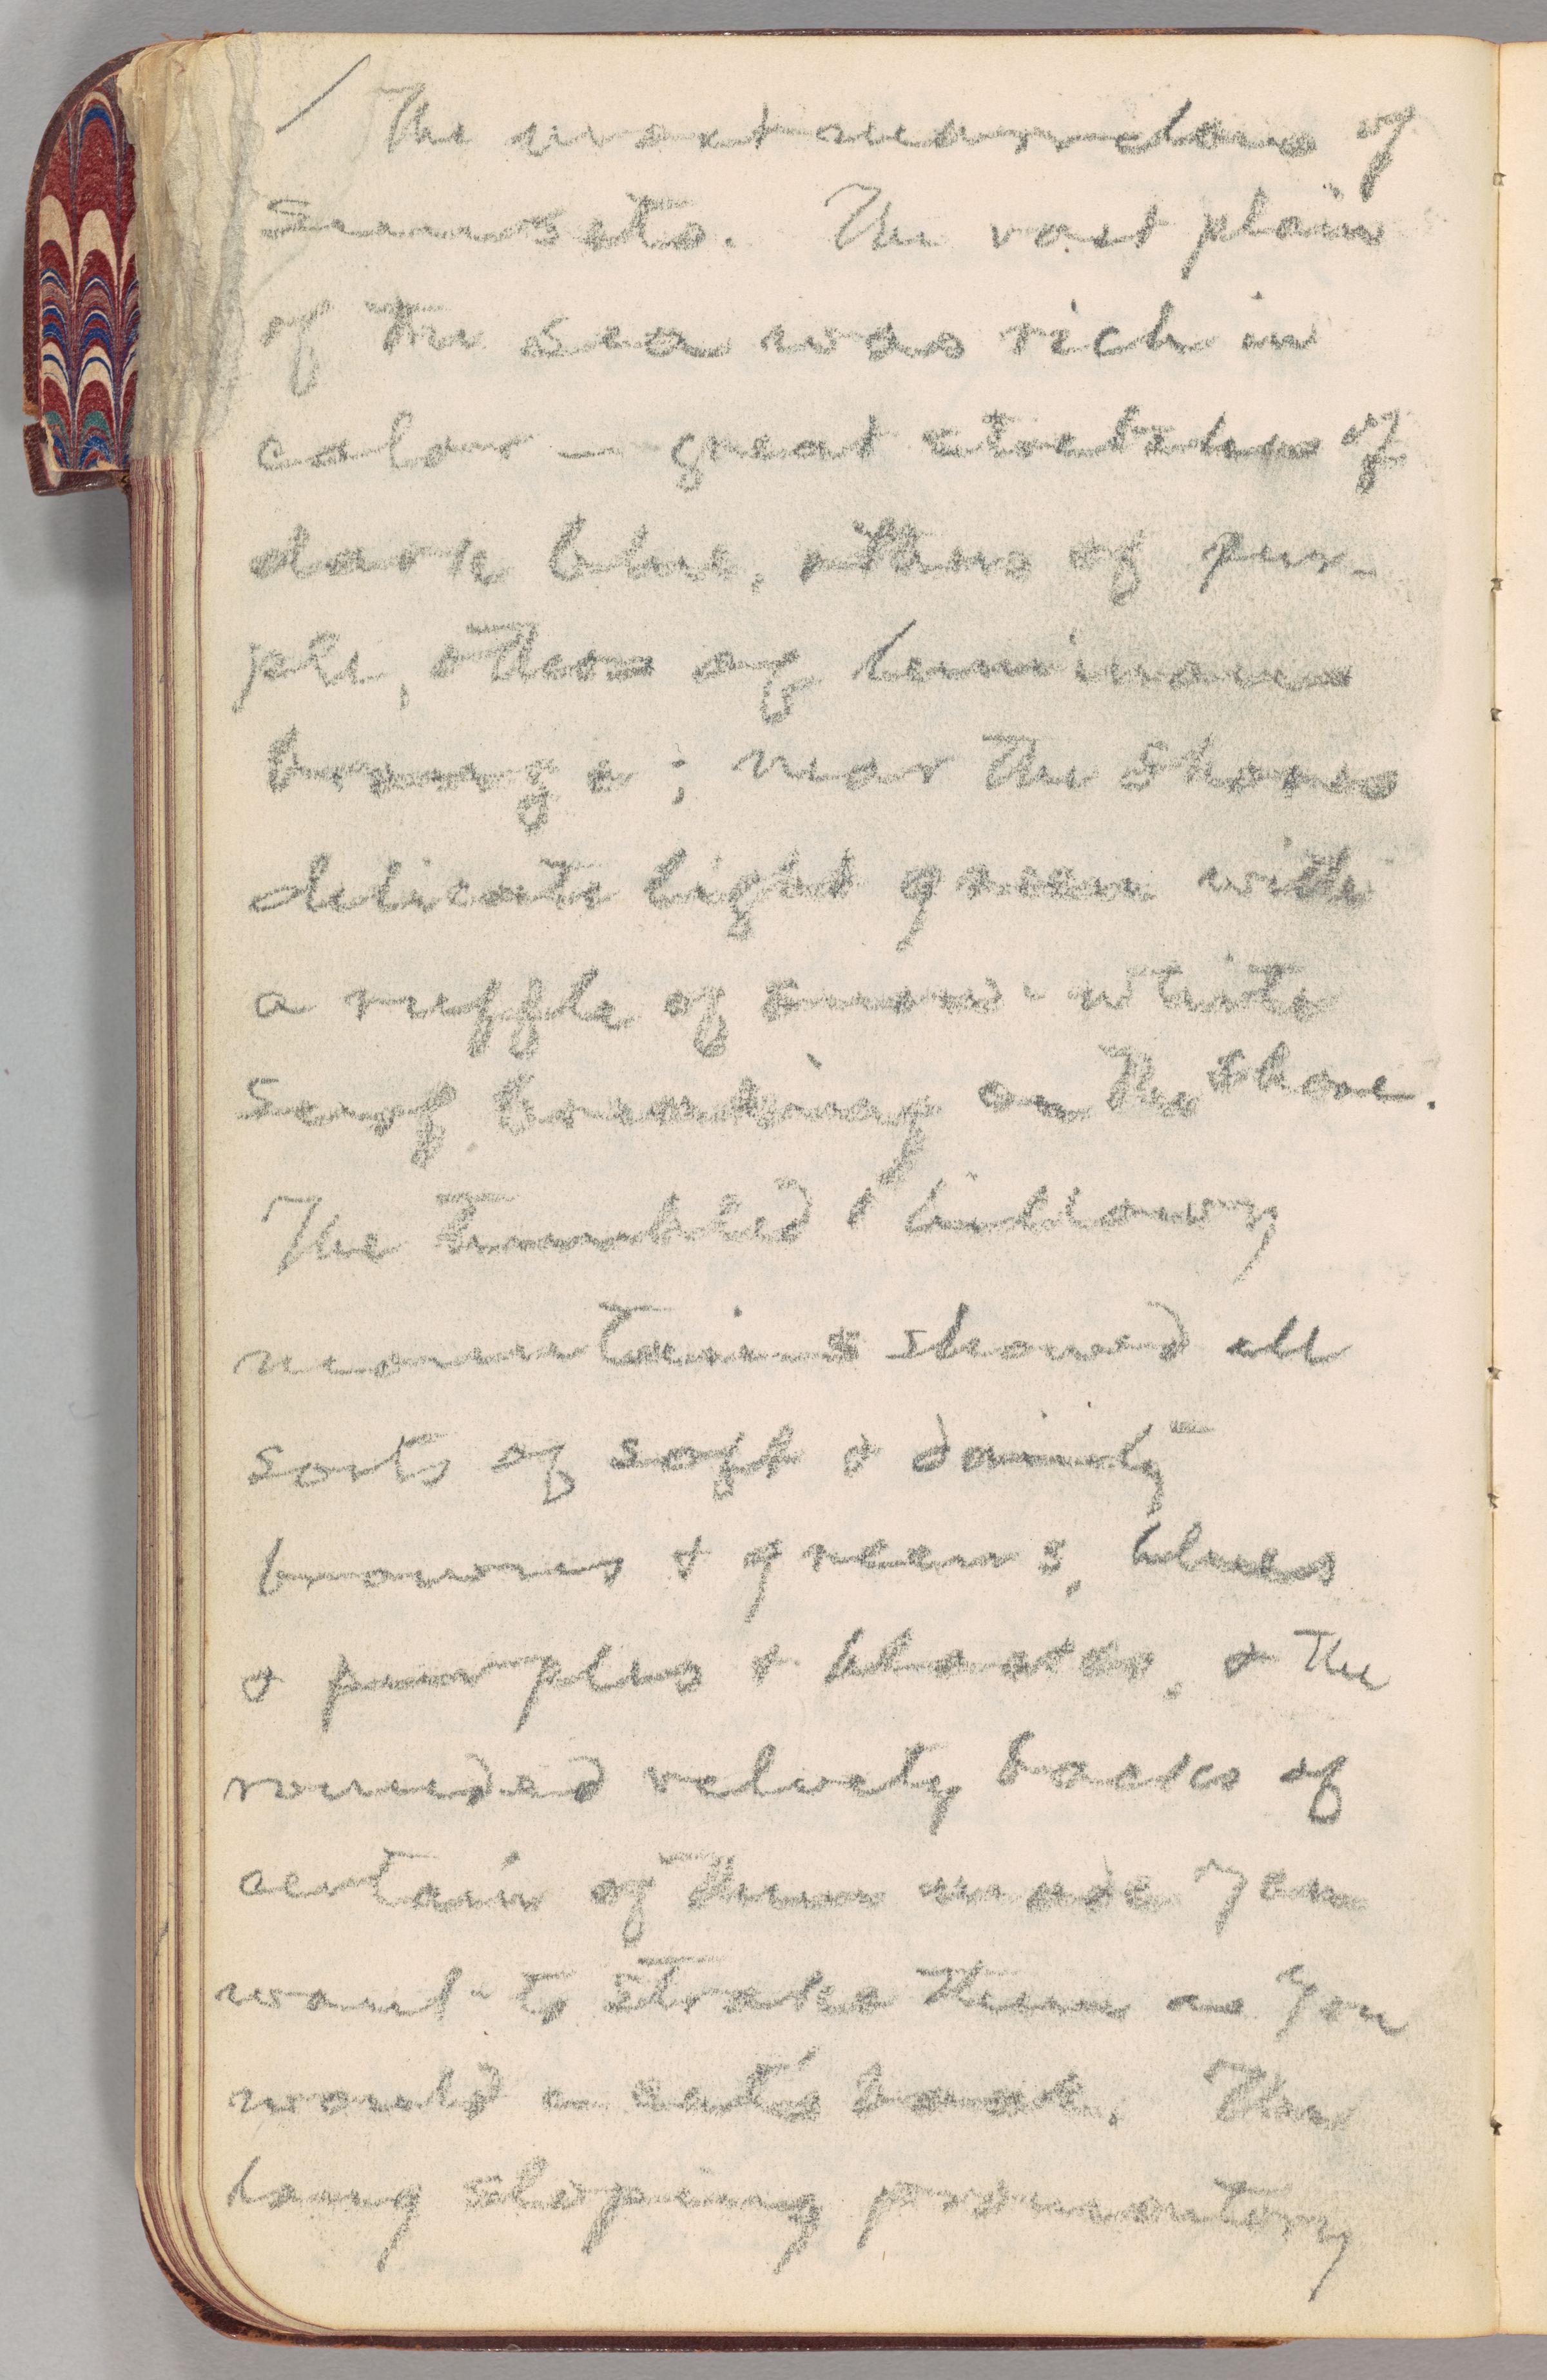 The most marvelous of
sunsets. The vast plain
of the sea was rich in
color — great stretches of
dark blue, others of pur-
ple, others of luminous
bronze; near the shores
delicate light green with
a ruffle of snow-white
surf breaking on the shore.
The tumbled & billowy
mountains showed all
sorts of soft & dainty
browns & greens, blues
& purples & blacks, & the
rounded velvety backs of
certain of them made you
want to stroke them as you
would a cat's back. The
long sloping promontory